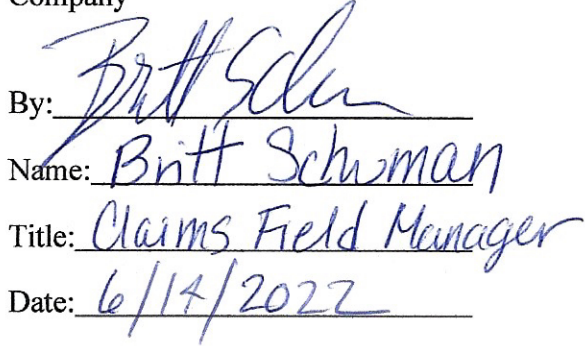 Company
By: Britt Schu
Name: Britt Schuman
Title: Claims Field Manager
Date: 6/14/2022